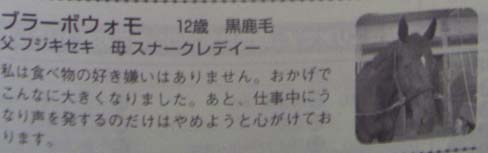 ブラーボウォモ　12歳　黒鹿毛
父 フジキセキ　母 スナークレデイー
私は食べ物の好き嫌いはありません。おかげで
こんなに大きくなりました。あと、仕事中にう
なり声を発するのだけはやめようと心がけてお
ります。